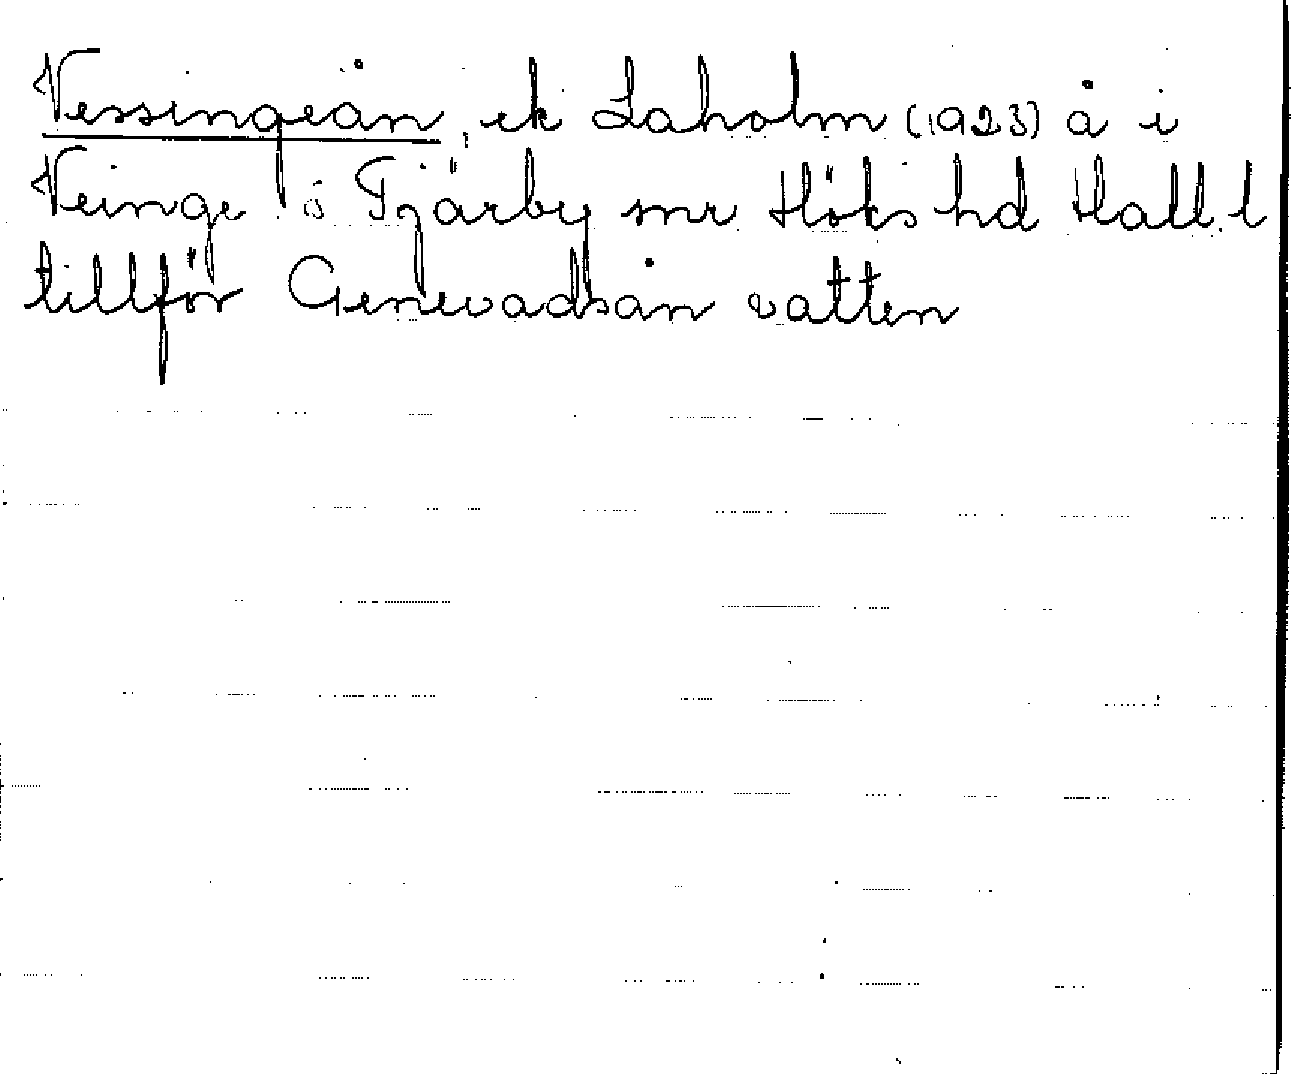 Vessingeån, ek Laholm (1923) å i
Veinge o Tjärby snr Höks hd Hall. l
tillför Genevadsån vatten